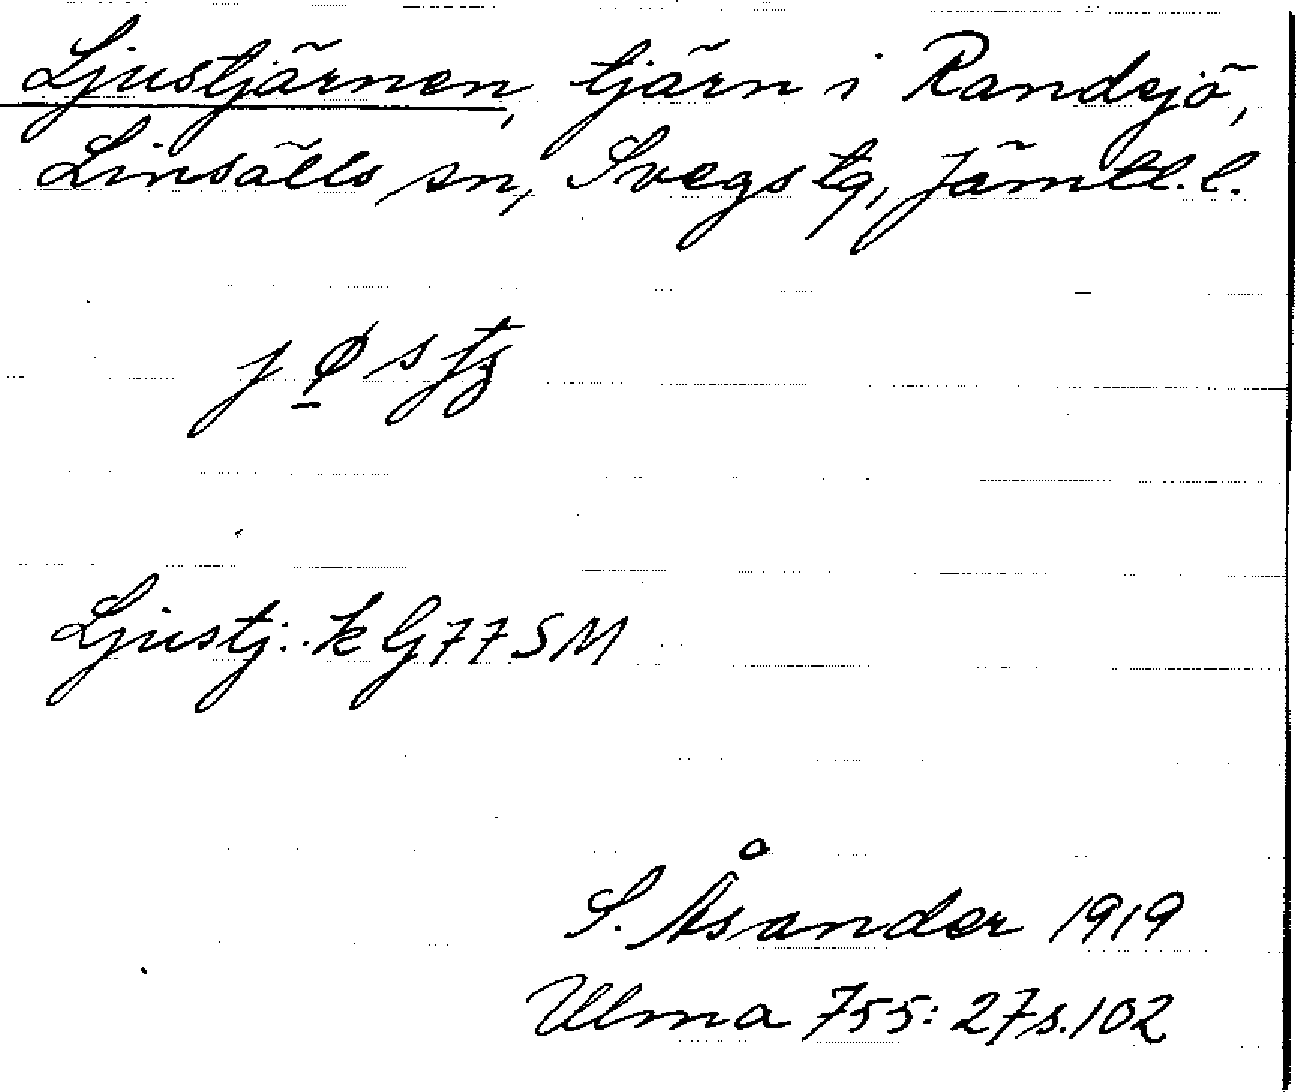 Ljustjärnen, tjärn i Randsjö,
Linsälls sn, Svegs tg, Jämtl. l.
Ljustj:. k G77SM
S. Åsander 1919
Ulma 755: 27 s. 102